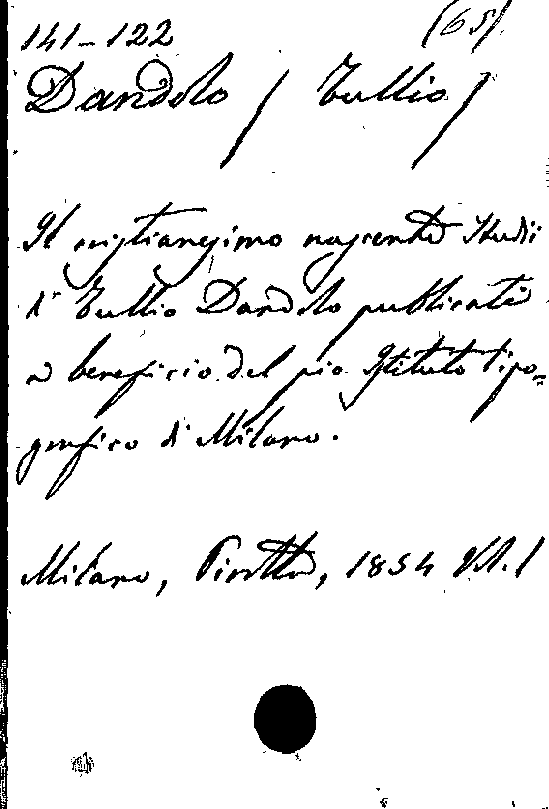 141-122 (65)
Dandolo / Tullio /
Il cristianesimo nascente Studii
di Tullio Dandolo pubblicati
a beneficio del pio Istituto tipo=
grafico di Milano.
Milano, Pirotta, 1854 Vol. 1